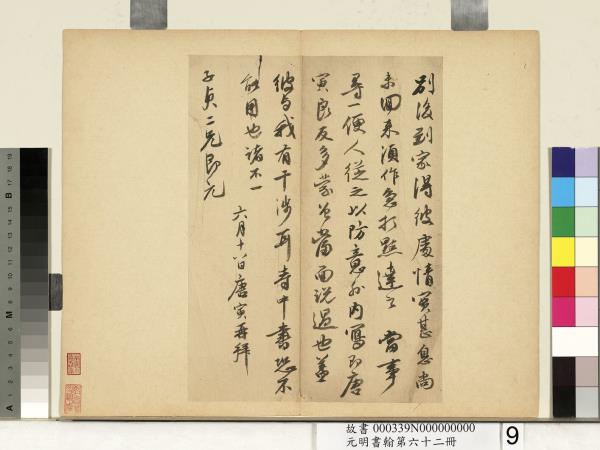 別後到家得彼處情實甚息尚
未回來須作急打點達之當事
尋一便人從之以防意外內寫即唐
寅良友多蒙公當面說過也蓋
彼与我有干涉耳寺中書恐不
能用也諸不一
六月十八日唐寅再拜
子貞二兄即元
故書 000339N000000000
元明書翰第六十二冊
9